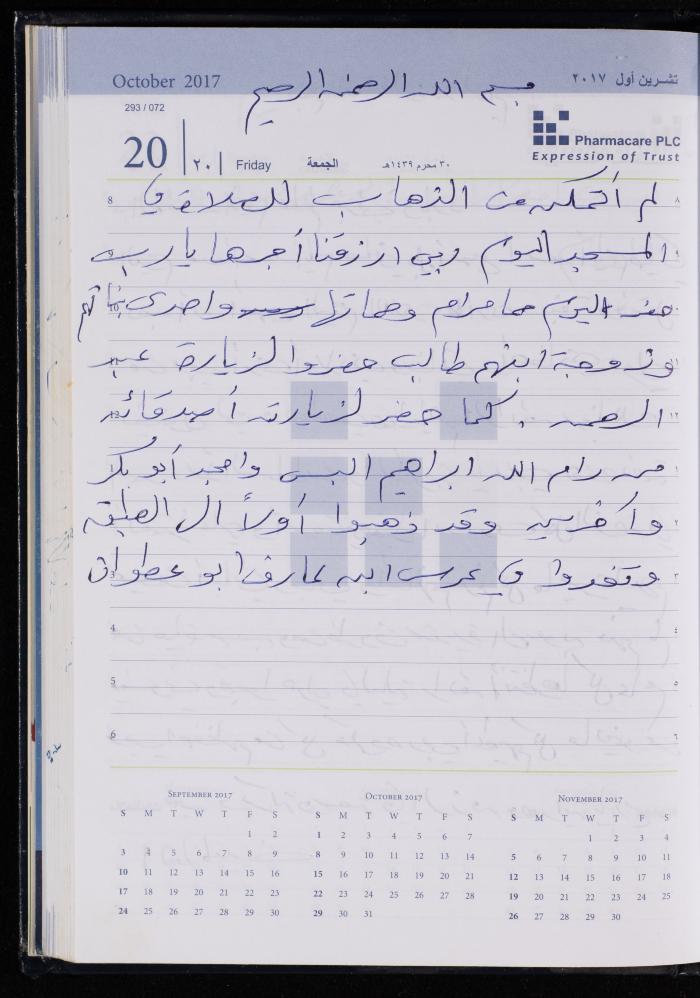 October 2017
تشرين أول ٢٠١٧
بسم الله الرحمن الرحيم
293 / 072
20
٢٠
Friday
الجمعة
٣٠ محرم ١٤٣٩هـ
Pharmacare PLC
Expression of Trust
8 لم أتمكن من الذهاب للصلاة في ٨
المسجد اليوم ربي ارزقنا أجرها يا رب
حضر اليوم حما مرام وحماتها واحدى بناتهم
وزوجة ابنهم طالب حضروا لزيارة عبد
الرحمن . كما حضر لزيارته أصدقائه ١٢
من رام الله ابراهيم وامجد أبو بكر ١
وآخرين وقد ذهبوا أولاً ال ٢
3 في عرس ابنه عارف ابو ٣
4 ٤
5 ٥
6 ٦
SEPTEMBER 2017
S M T W T F S
1 2
3 4 5 6 7 8 9
10 11 12 13 14 15 16
17 18 19 20 21 22 23
24 25 26 27 28 29 30
OCTOBER 2017
S M T W T F S
1 2 3 4 5 6 7
8 9 10 11 12 13 14
15 16 17 18 19 20 21
22 23 24 25 26 27 28
29 30 31
NOVEMBER 2017
S M T W T F S
1 2 3 4
5 6 7 8 9 10 11
12 13 14 15 16 17 18
19 20 21 22 23 24 25
26 27 28 29 30